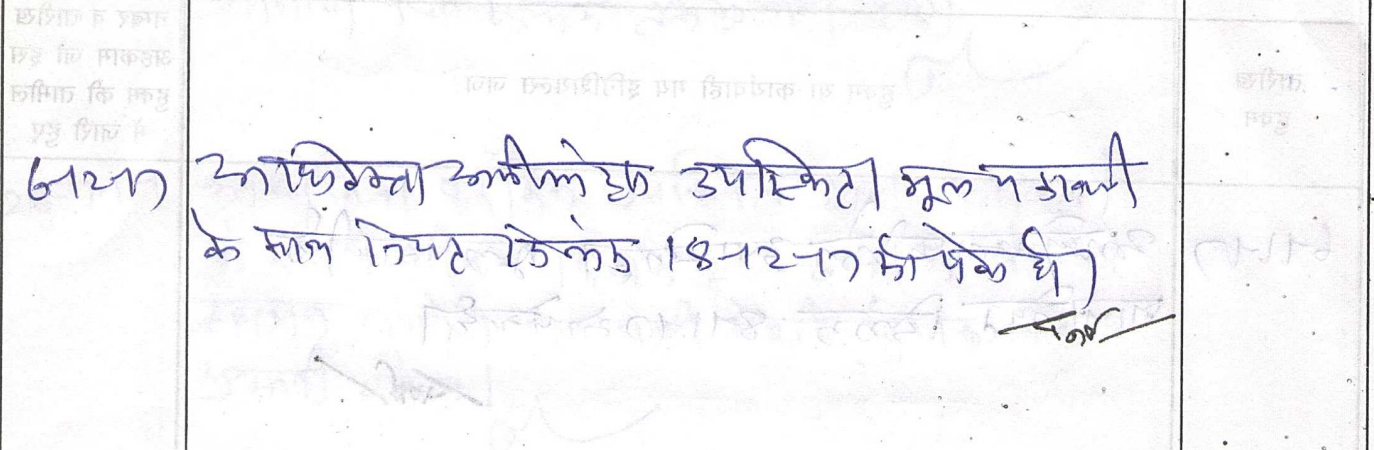 6-12-17 अधिवक्ता अपीलांट उपस्थित। मूल पत्रावली
के साथ नियत दिनांक 18-12-17 को पेश हो।